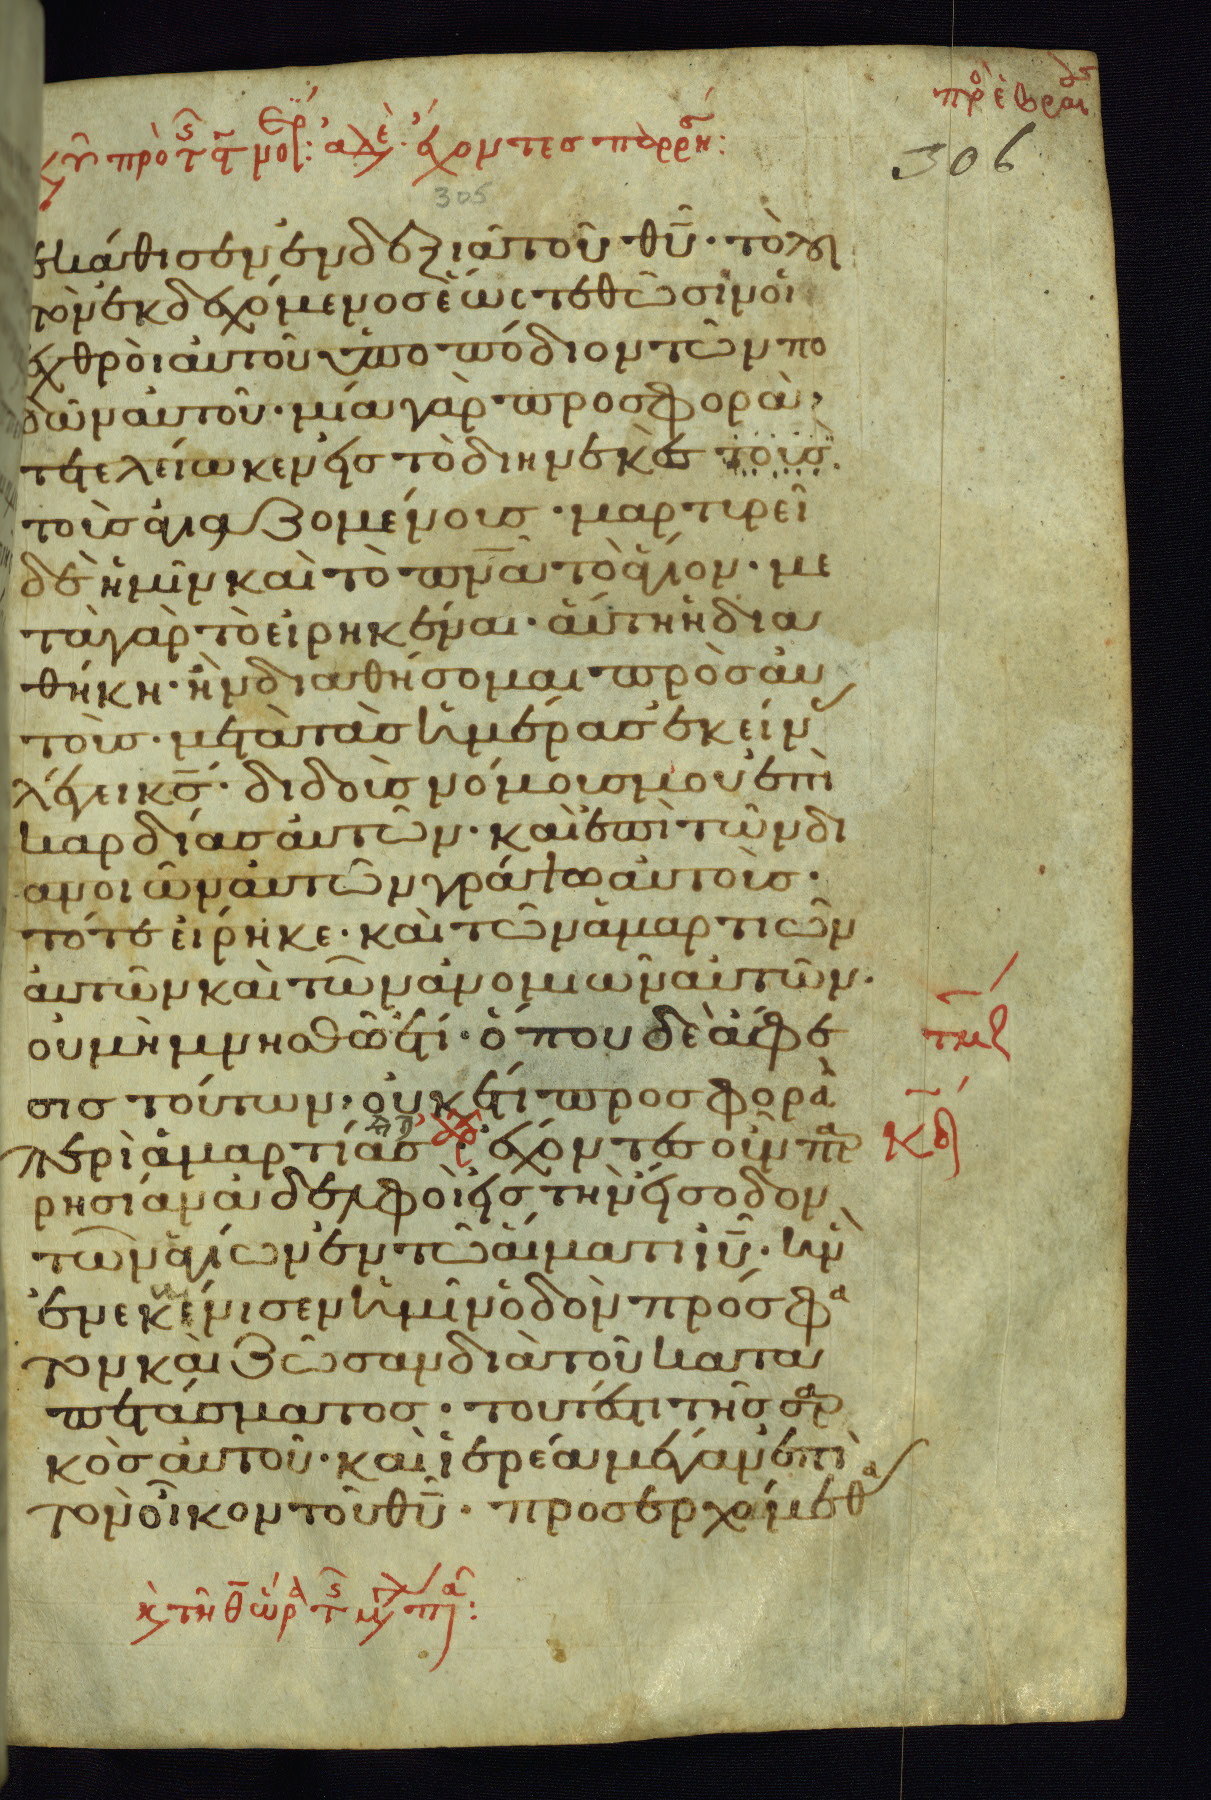 πρ ἑβραι
306
305
ἐκάθισεν ἐν δεξιᾶ τοῦ θῦ · τὸ λοι
πὸν ἐκδεχόμενος ἕως τεθῶσιν οἱ
ἐχθροὶ αὐτοῦ ὑποπόδιον τῶν πο
δῶν αὐτοῦ · μία γὰρ προσφορὰ ·
τετελείωκεν εἰς τὸ διηνεκὲς τοὺς
τοὺς ἁγιαζομένους · μαρτυρεῖ
δὲ ἡμῖν καὶ τὸ πνᾶ τὸ ἅγιον · με
τὰ γὰρ τὸ εἰρηκέναι · αὕτη ἡ δια
θήκη · ἣν διαθήσομαι πρὸς αὐ
τοὺς · μετὰ τὰς ἡμέρας ἐκείν
λέγει κς · διδοὺς νόμους μου ἐπὶ
καρδίας αὐτῶν · καὶ ἐπὶ τῶν δι
ανοιῶν αὐτῶν γράψω αὐτοὺς ·
τότε εἴρηκε · καὶ τῶν ἁμαρτιῶν
αὐτῶν καὶ τῶν ἀνομιῶν αὐτῶν ·
οὐ μὴ μνησθῶ ἔτι · ὅπου δὲ ἄφε
σις τούτων · οὐκ ἔτι προσφορὰ
περὶ ἁμαρτίας ἔχοντες οὖν παρ
ρησίαν ἀδελφοὶ εἰς τὴν εἴσοδον
τῶν ἁγίων ἐν τῶ αἵματι ιῦ · ἣν
ἐνεκένισεν ἡμῖν ὁδὸν πρόσφα
τον καὶ ζῶσαν διὰ τοῦ κατα
πετάσματος · τουτέστι τῆς σαρ
κὸς αὐτοῦ · καὶ ἱερέα μέγαν ἐπὶ
τὸν οἶκον τοῦ θῦ · προσερχώμεθα